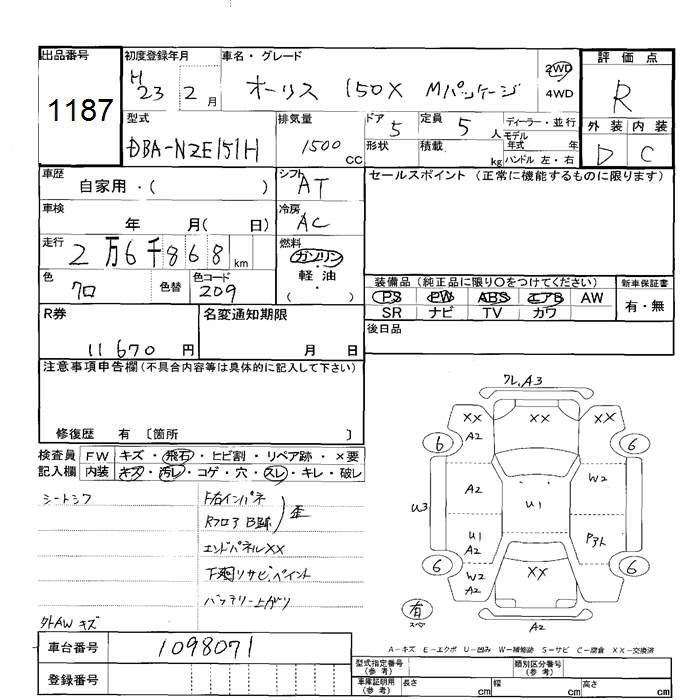 出品番号
1187
初度登録年月
H 23 2 月
車名・グレード
オーリス 150X Mパッケージ
2WD
4WD
評価点
R
外装 内装
D C
型式
DBA-NZE151H
排気量
1500 cc
ドア 5
形状
定員 5 人
積載 kg
ディーラー・並行
モデル
年式 年
ハンドル 左・右
車歴
自家用・( )
シフト
AT
車検
年 月( 日)
冷房
AC
走行
2万6千868 km
燃料
ガソリン
軽・油
・
( )
色
クロ 色替
色コード
209
セールスポイント (正常に機能するものに限ります)
装備品 (純正品に限り○をつけてください)
PS PW ABS エアB AW
SR ナビ TV カワ
新車保証書
有・無
後日品
R券
11670 円
名変通知期限
月 日
注意事項申告欄(不具合内容等は具体的に記入して下さい)
修復歴 有 〔箇所 〕
検査員
記入欄
FW キズ・飛石・ヒビ割・リペア跡・×要
内装 キズ・汚レ・コゲ・穴・スレ・キレ・破レ
シートシワ
F右インパネ
Rフロア B跡
歪
エンドパネルXX
下廻リサビ、ペイント
バッテリー上がり
外AW キズ
車台番号
1098071
登録番号
ワレ、A3
XX
A2
XX
XX
6
6
A2
W2
U3
U1
U1
A2
Pアト
6
6
W2
A2
XX
有
スペア
A2
A-キズ E-エクボ U-凹み W-補修跡 S-サビ C-腐食 XX-交換済
型式指定番号
(参考)
類別区分番号
(参考)
車庫証明用
(参考)
長さ cm
幅 cm
高さ cm